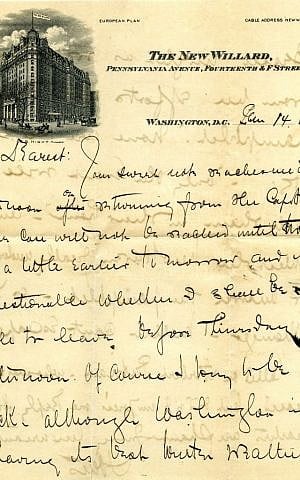 EUROPEAN PLAN
CABLE ADDRESS NEW
THE NEW WILLARD,
PENNSYLVANIA AVENUE, FOURTEENTH & F STREE
WASHINGTON, D.C. Jan 14
Dearest:
Your sweet note reached me
noon returning from the Cap
can will not be reached until
a little earlier tomorrow, and
estionable whether I shall be
le to leave before Thursday
ternoon. Of course I long to be
although Washington i
aving its best winter weather